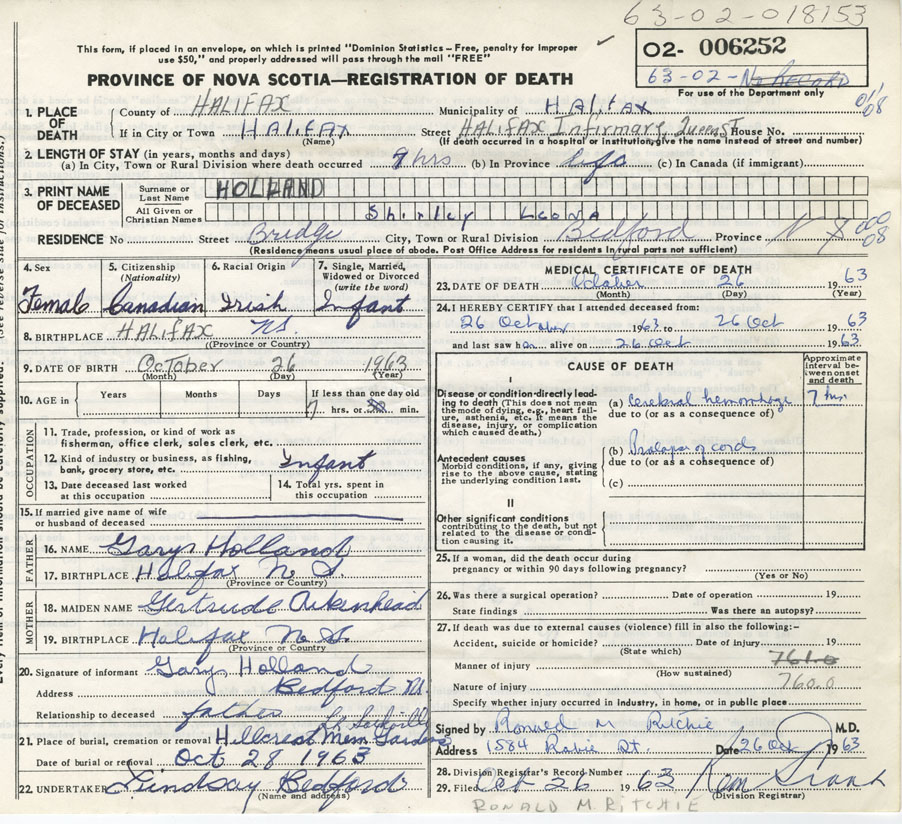 63-02-018153
This form, if placed in an envelope, on which is printed "Dominion Statistics – Free, penalty for improper
use $50," and properly addressed will pass through the mail "FREE"
02- 006252
63-02-No Record
For use of the Department only
PROVINCE OF NOVA SCOTIA—REGISTRATION OF DEATH
1. PLACE OF DEATH
County of HALIFAX Municipality of HALIFAX
08
If in City or Town HALIFAX Street HALIFAX Infirmary, Queen St House No.
(Name) (If death occurred in a hospital or institution, give the name instead of street and number)
2. LENGTH OF STAY (in years, months and days)
(a) In City, Town or Rural Division where death occurred 7 hrs (b) In Province Life (c) In Canada (if immigrant)
3. PRINT NAME OF DECEASED
Surname or Last Name HOLLAND
All Given or Christian Names Shirley Leona
RESIDENCE No Street Bridge City, Town or Rural Division Bedford Province N S
08
(Residence means usual place of abode. Post Office Address for residents in rural parts not sufficient)
4. Sex Female
5. Citizenship (Nationality) Canadian
6. Racial Origin Irish
7. Single, Married, Widowed or Divorced (write the word) Infant
8. BIRTHPLACE HALIFAX NS.
(Province or Country)
9. DATE OF BIRTH October 26 1963
(Month) (Day) (Year)
10. AGE in Years Months Days If less than one day old
7 hrs. or min.
OCCUPATION
11. Trade, profession, or kind of work as
fisherman, office clerk, sales clerk, etc.
12. Kind of industry or business, as fishing,
bank, grocery store, etc. Infant
13. Date deceased last worked
at this occupation
14. Total yrs. spent in
this occupation
15. If married give name of wife
or husband of deceased
FATHER
16. NAME Gary Holland
17. BIRTHPLACE Halifax N S.
(Province or Country)
MOTHER
18. MAIDEN NAME Gertrude Aikenhead
19. BIRTHPLACE Halifax N S.
(Province or Country)
20. Signature of informant Gary Holland
Address Bedford NS.
Relationship to deceased father
Lr Sackville
21. Place of burial, cremation or removal Hillcrest Mem. Gardens
Date of burial or removal Oct 28 1963
22. UNDERTAKER Lindsay Bedford
(Name and address)
MEDICAL CERTIFICATE OF DEATH
23. DATE OF DEATH October 26 1963
(Month) (Day) (Year)
24. I HEREBY CERTIFY that I attended deceased from:
26 October 1963 to 26 Oct 1963
and last saw her alive on 26 Oct 1963
CAUSE OF DEATH
Approximate
interval between onset
and death
I
Disease or condition directly leading to death (This does not mean
the mode of dying, e.g., heart failure, asthenia, etc. It means the
disease, injury, or complication
which caused death.)
(a) Cerebral hemorrhage 7 hrs.
due to (or as a consequence of)
Antecedent causes
Morbid conditions, if any, giving
rise to the above cause, stating
the underlying condition last.
(b) Prolapse of cords
due to (or as a consequence of)
(c)
II
Other significant conditions
contributing to the death, but not
related to the disease or condition causing it.
25. If a woman, did the death occur during
pregnancy or within 90 days following pregnancy?
(Yes or No)
26. Was there a surgical operation? Date of operation 19
State findings Was there an autopsy?
27. If death was due to external causes (violence) fill in also the following:-
Accident, suicide or homicide? Date of injury 19
(State which)
761.0
Manner of injury
(How sustained)
760.0
Nature of injury
Specify whether injury occurred in industry, in home, or in public place
Signed by Ronald M Ritchie M.D.
Address 1584 Robie St. Date 26 Oct 1963
28. Division Registrar's Record Number
29. Filed Oct 26 1963
(Division Registrar)
RONALD M. RITCHIE